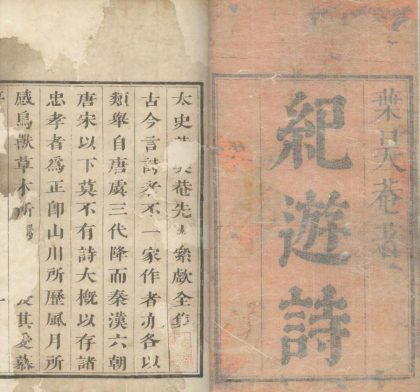 葉天菴著
紀遊詩
太史天菴先全集
古今言詩者不一家作者亦各以
類舉自唐虞三代降而秦漢六朝
唐宋以下莫不有詩大概以存諸
忠孝者為正卽山川所歷風月所
感鳥獸草木所其愛慕